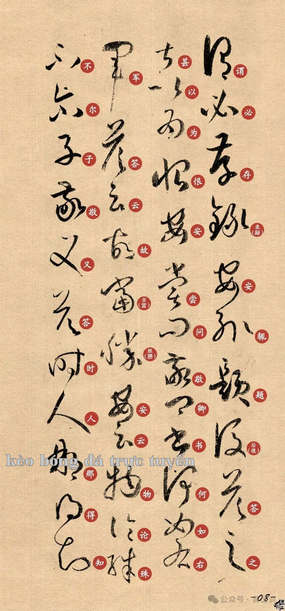 谓必存録安辄题后答之
甚以为恨安尝问敬卿书何如右
军答云故当胜安云物论殊
不尔子敬又答时人那得知
kèo bóng đá trực tuyến
公众号
-08-